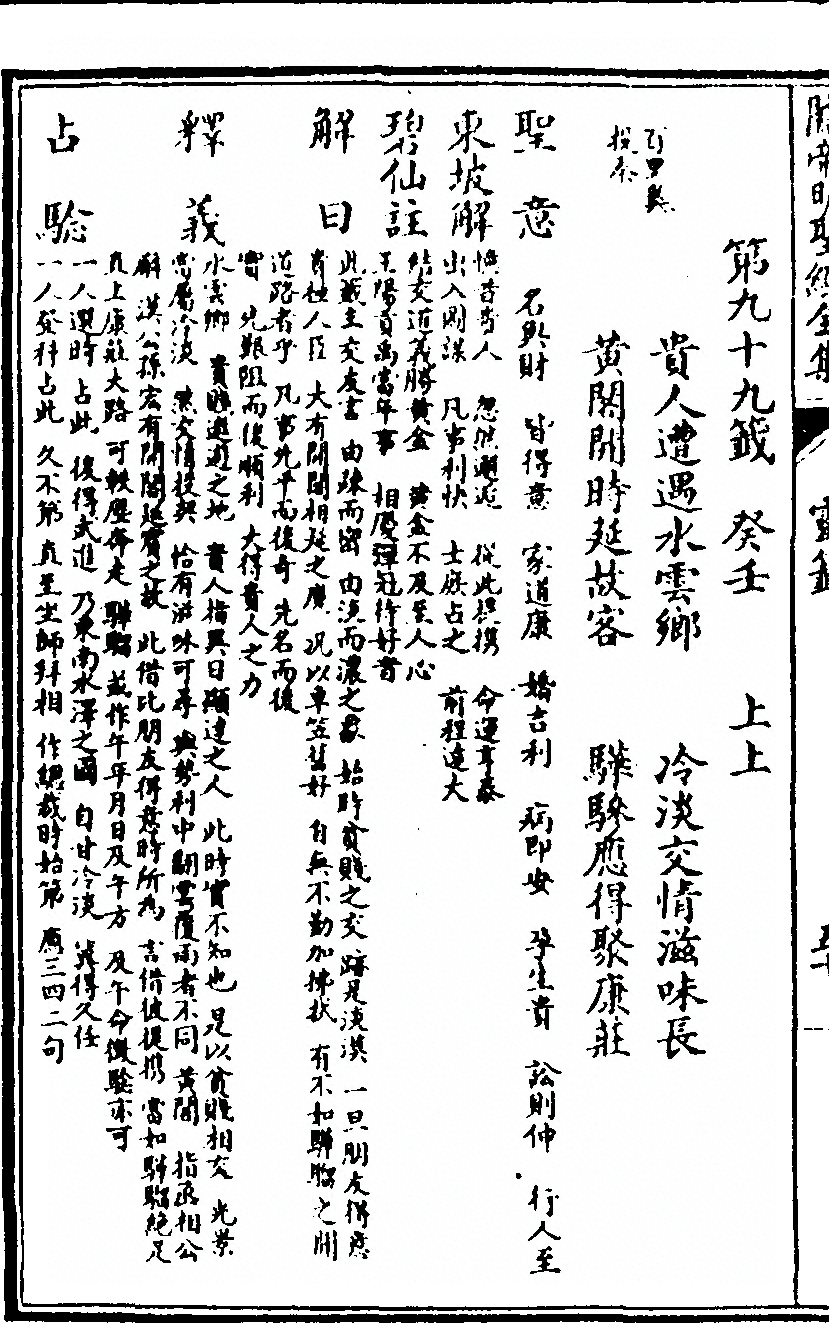 關帝明聖經全集
靈籤
五十
第九十九籤 癸壬 上上
百里奚
投秦
貴人遭遇水雲鄉 冷淡交情滋味長
黃閣開時延故客 驊騮應得聚康莊
聖意 名與財 皆得意 家道康 婚吉利 病即安 孕生貴 訟則伸 行人至
東坡解 惟吾貴人 忽然邂逅 從此提攜 命運亨泰
出入圖謀 凡事利快 士庶占之 前程遠大
碧仙註 結交道義勝黃金 黃金不及至人心
王陽貢禹當年事 相慶彈冠待好音
解曰 此籤主交友言 由疎而密 由淡而濃之象 始時貧賤之交 跡是淡漠 一旦朋友得意
貴極人臣 大有開閣相延之廣 況以車笠舊好 自無不勤加拂拭 有不如驊騮之開
道路者乎 凡事先平而後奇 先名而後
實 先艱阻而後順利 大得貴人之力
釋義 水雲鄉 貴賤邂逅之地 貴人指異日顯達之人 此時實不知也 是以貧賤相交 光景
雖屬冷淡 然交情投契 恰有滋味可尋 與勢利中翻雲覆雨者不同 黃閣 指丞相公
廨 漢公孫宏有開閣延賓之故 此借比朋友得意時所為 言借彼提攜 當如驊騮絕足
直上康莊大路 可軼塵奔走 驊騮 或作午年月日及午方 及午命徵驗亦可
占驗 一人選時 占此 後得武進 乃東南水澤之國 自甘冷淡 難得久任
一人發科占此 久不第 直至坐師拜相 作總裁時始第 應三四二句